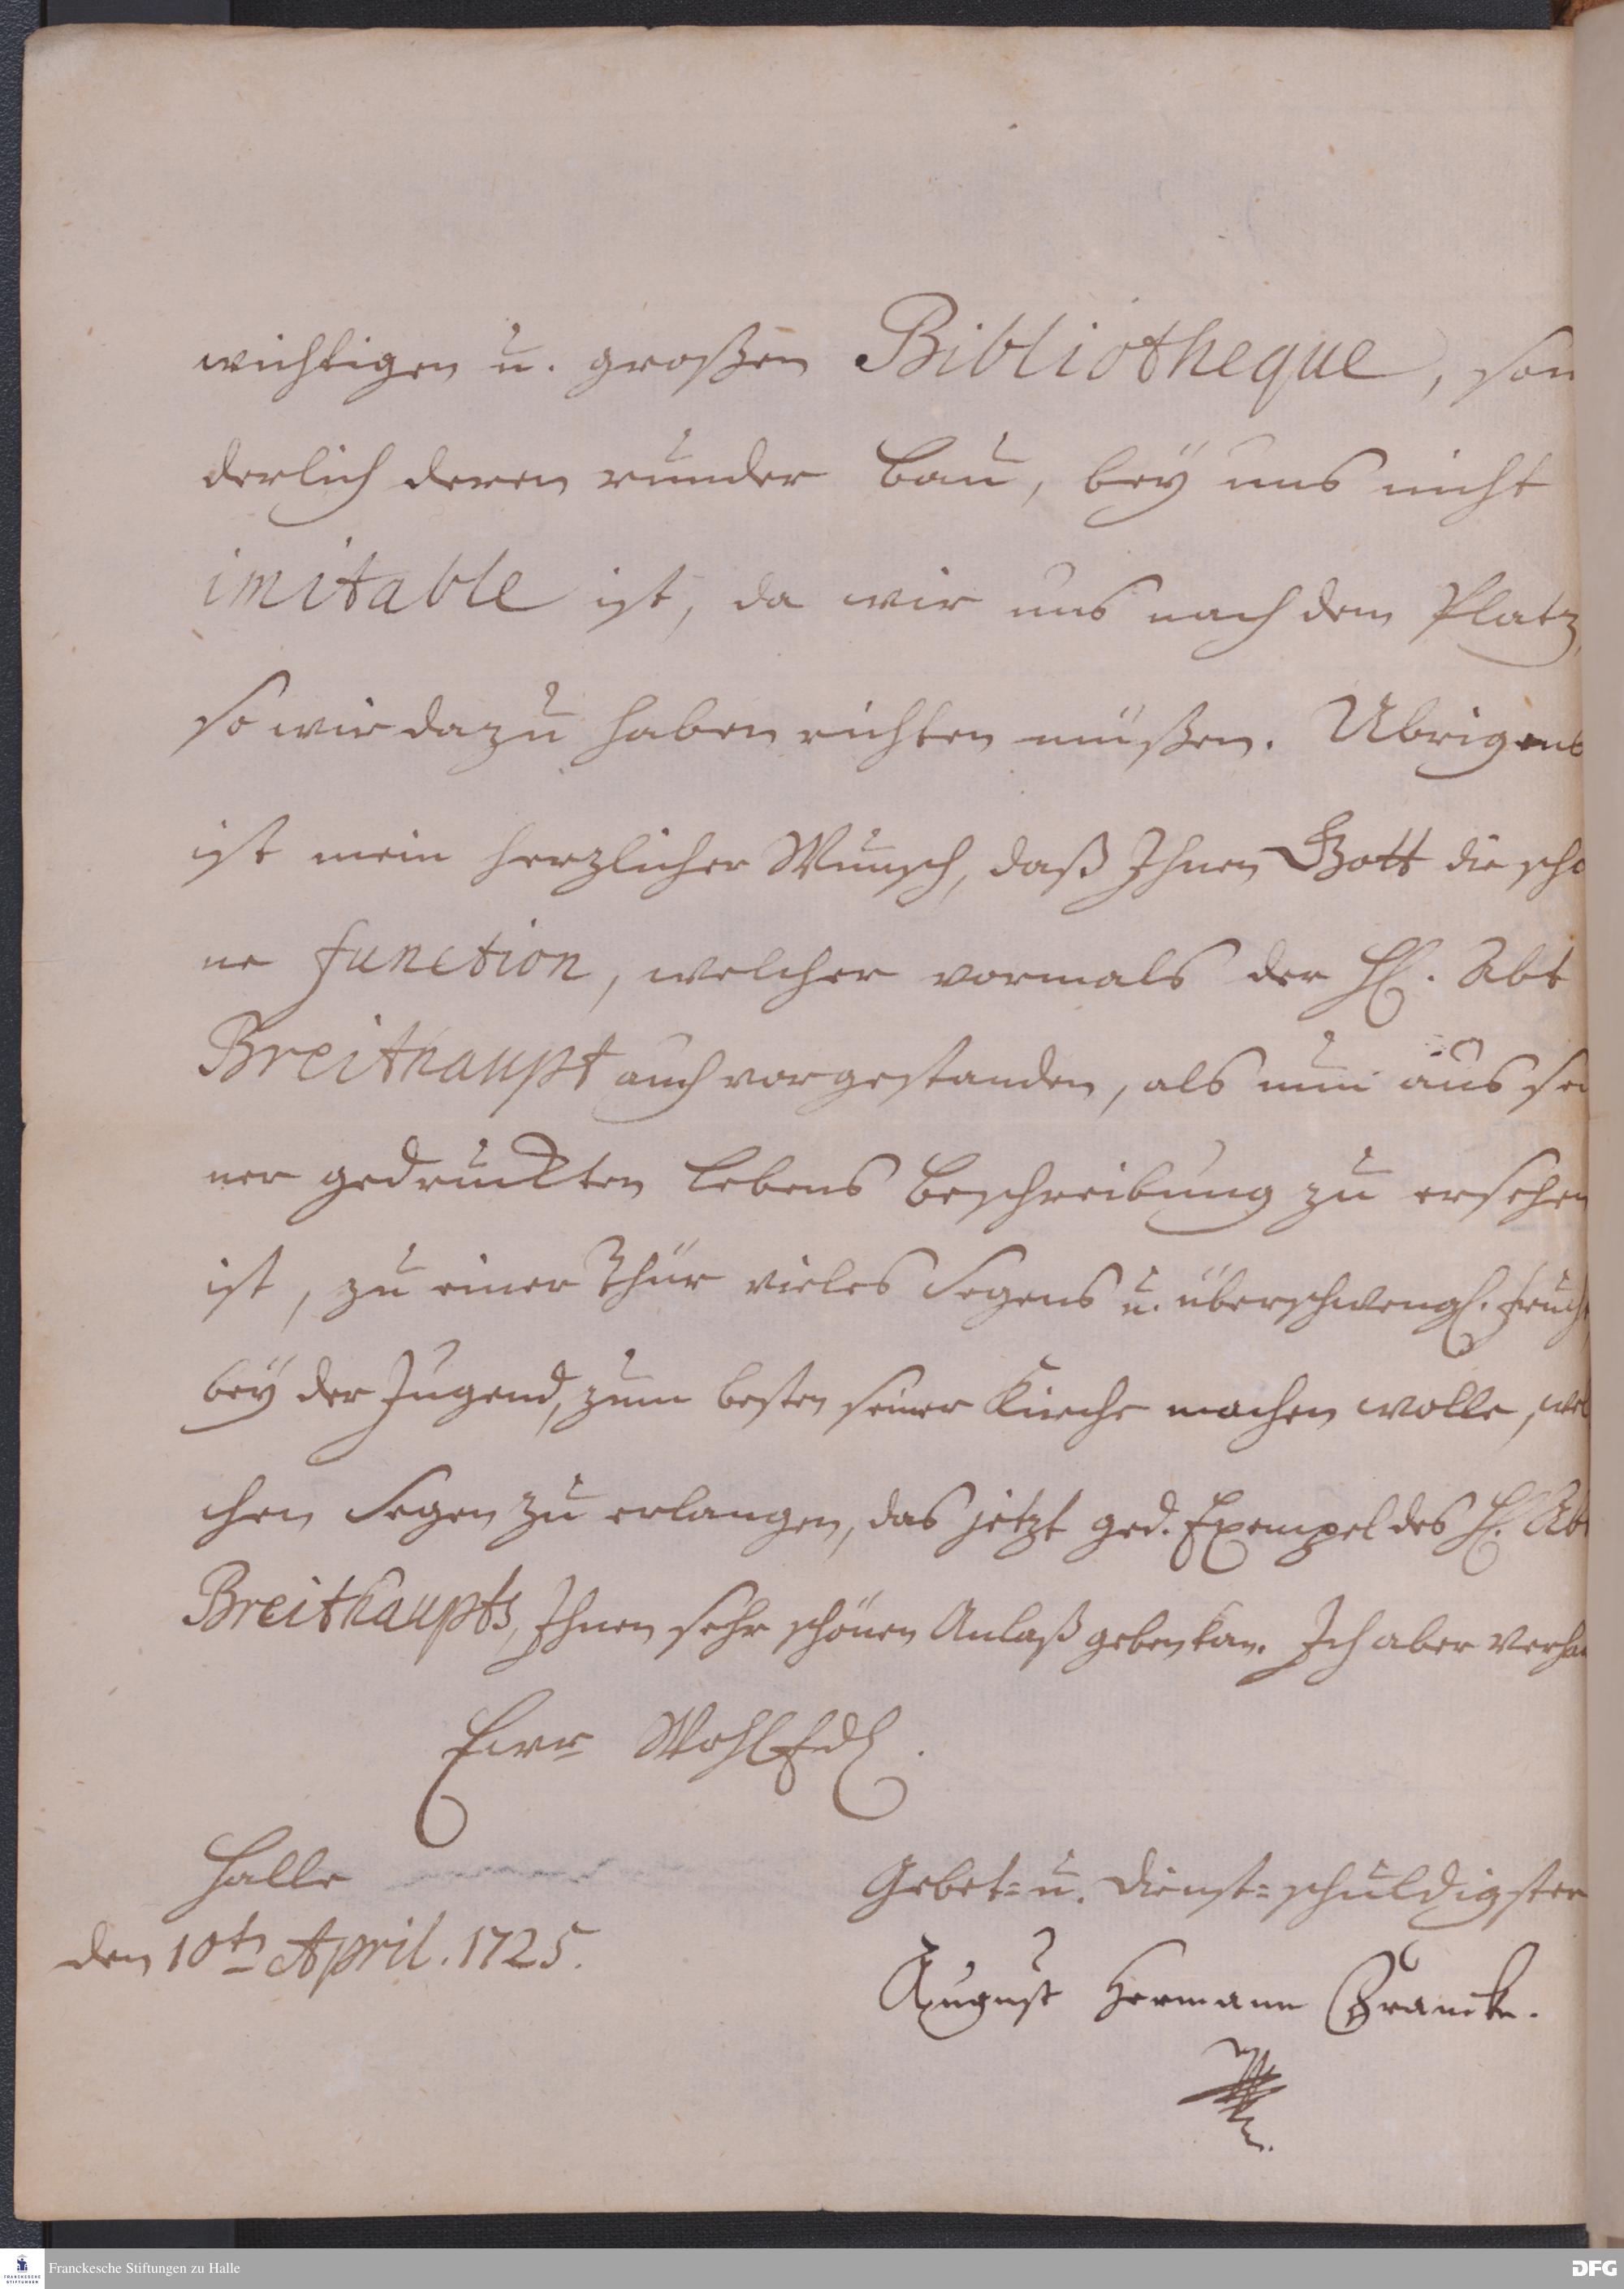 wichtigen u. großen Bibliotheque, son
derlich deren runder bau, beÿ uns nicht
imitable ist, da wir uns nach dem Platz,
so wir dazu haben richten müßen. Ubrigens
ist mein herzlicher Wunsch, daß Ihnen Gott die schö
ne function, welcher vormals der H. Abt
Breithaupt auch vorgestanden, als nun aus sei
ner gedruckten Lebens beschreibung zu ersehen
ist, zu einer Thür vieles Segens u. überschwengl. Frucht
beÿ der Jugend, zum besten seiner Kirche machen wolle, wel
chen Segen zu erlangen, das jetzt ged. Exempel des H. Abt
Breithaupts, Ihnen sehr schönen Anlaß geben kan. Ich aber verhar
Ewr WohlEdl.
Halle
den 10ten April. 1725.
Gebet= u. dienst=schuldigster
August Hermann Francke.
FRANCKESCHE STIFTUNGEN
Franckesche Stiftungen zu Halle
DFG